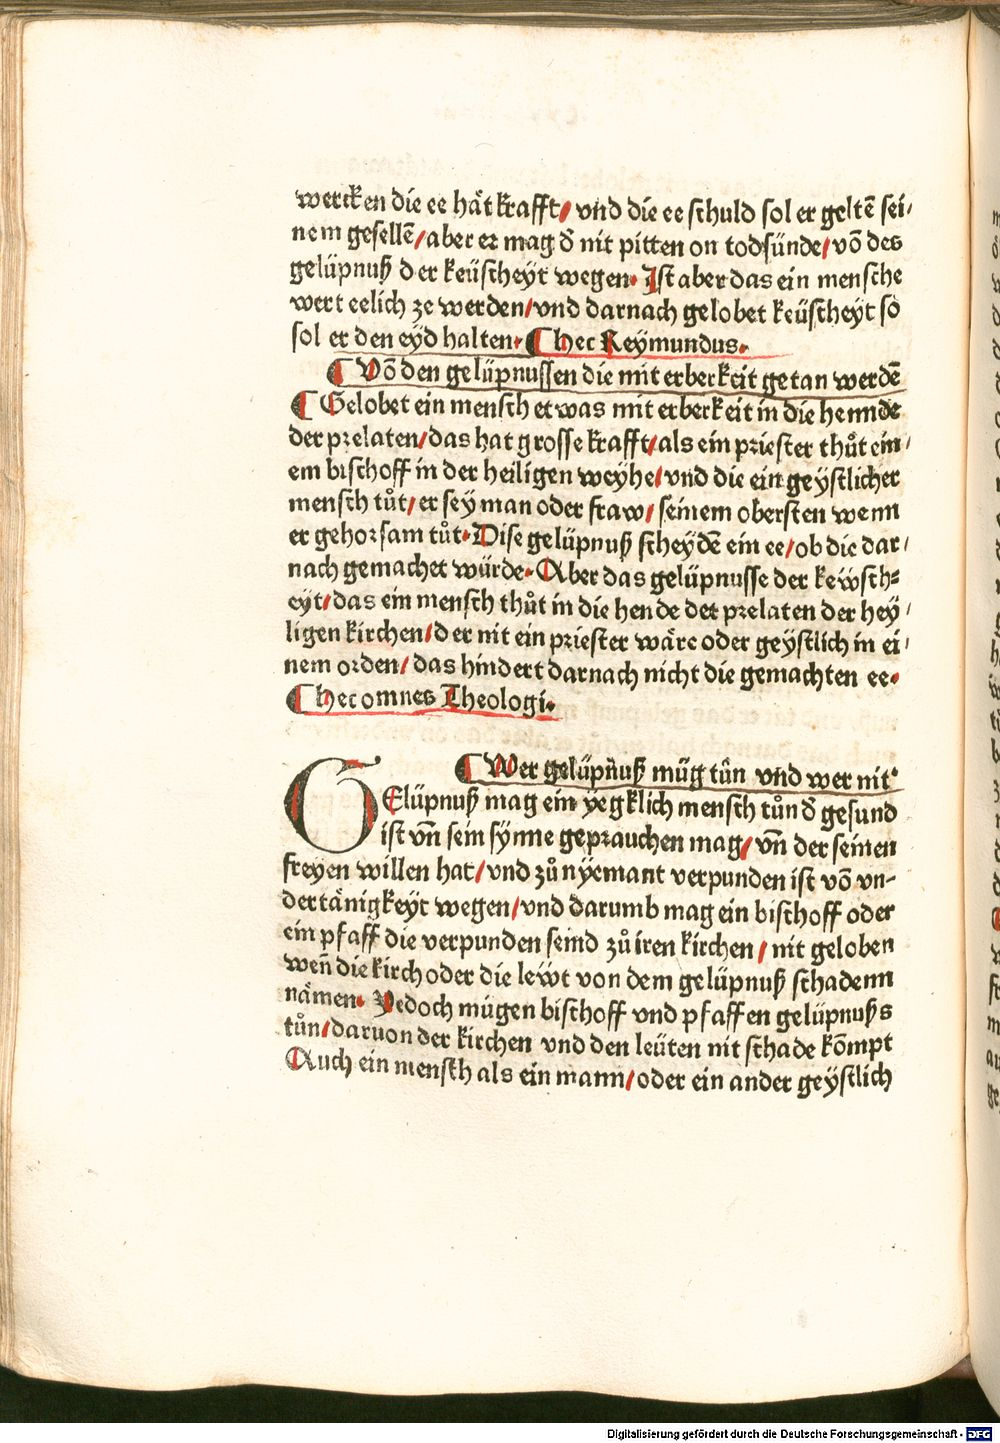 wercken die ee hät krafft/ vnd die ee schuld sol er geltē sei/
nem gesellē/aber er mag ď nit pitten on todsünde/vō des
gelüpnuß der keüscheyt wegen· Ist aber das ein mensche
wert eelich ze werden/vnd darnach gelobet keüscheyt so
sol er den eyd halten· ¶ hec Reymundus·
¶ Vō den gelüpnussen die mit erberkeit getan werdē
¶ Gelobet ein mensch etwas mit erberkeit in die hennde
der prelaten/das hat grosse krafft/als ein priester thůt ein/
em bischoff in der heiligen weyhe/vnd die ein geystlicher
mensch tůt/er sey man oder fraw/ seinem obersten wenn
er gehorsam tůt· Dise gelüpnuß scheydē ein ee/ob die dar/
nach gemachet würde· Aber das gelüpnusse der kewsch=
eyt/das ein mensch thůt in die hende der prelaten der hey/
ligen kirchen/der nit ein priester wäre oder geystlich in ei/
nem orden/das hindert darnach nicht die gemachten ee·
¶ hec omnes Theologi·
¶ Wer gelüpnuß müg tůn vnd wer nit·
GElüpnuß mag ein yegklich mensch tůn ď gesund
ist vn̄ sein synne geprauchen mag/ vn̄ der seinen
freyen willen hat/vnd zů nyemant verpunden ist vō vn-
dertänigkeyt wegen/vnd darumb mag ein bischoff oder
ein pfaff die verpunden seind zů iren kirchen/ nit geloben
wen̄ die kirch oder die lewt von dem gelüpnuß schadenn
nämen· Yedoch mügen bischoff vnd pfaffen gelüpnuß
tůn/daruon der kirchen vnd den leüten nit schade kōmpt
Auch ein mensch als ein mann/oder ein ander geystlich
Digitalisierung gefördert durch die Deutsche Forschungsgemeinschaft - DFG